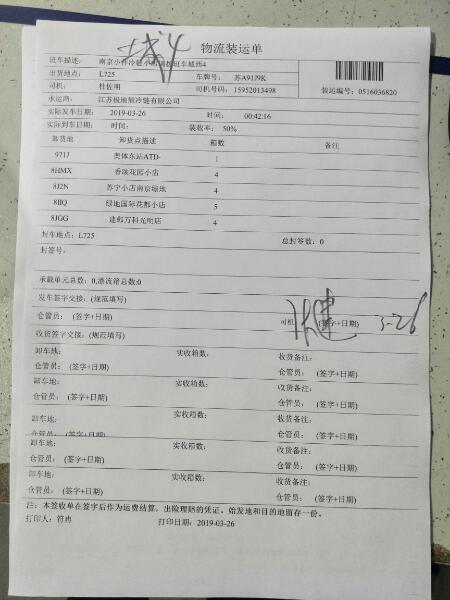 城4
物流装运单
班车描述: 南京小件冷链小店调拨班车城西4
出货地点: L725 车牌号: 苏A91J9K
司机: 杜佐明 司机号码: 15952013498 装运编号: 0516036820
承运商: 江苏极地熊冷链有限公司
实际发车日期: 2019-03-26 时间: 00:42:16
实际到车日期: 时间: 装收率: 50%
卸货地 卸货点描述 箱数 备注
971J 奥体东站ATD- 1
8HMX 香颂花园小店 4
8J2N 苏宁小店南京绿地 4
8IIQ 绿地国际花都小店 5
8JGG 建邺万科光明店 4
封车地点: L725 总封签数: 0
封签号:
承载单元总数: 0,漂流箱总数:0
发车签字交接: (规范填写)
仓管员: (签字+日期) 司机 (签字+日期) 3-26
收货签字交接: (规范填写)
卸车地: 实收箱数: 收货备注:
仓管员: (签字+日期) 仓管员: (签字+日期)
卸车地: 实收箱数: 收货备注:
仓管员: (签字+日期) 仓管员: (签字+日期)
卸车地: 实收箱数: 收货备注:
仓管员: (签字+日期) 仓管员: (签字+日期)
卸车地: 实收箱数: 收货备注:
仓管员: (签字+日期) 仓管员: (签字+日期)
卸车地: 实收箱数: 收货备注:
仓管员: (签字+日期) 仓管员: (签字+日期)
注: 本签收单在签字后作为运费结算, 出险理赔的凭证, 始发地和目的地留存一份。
打印人: 符冉 打印日期: 2019-03-26